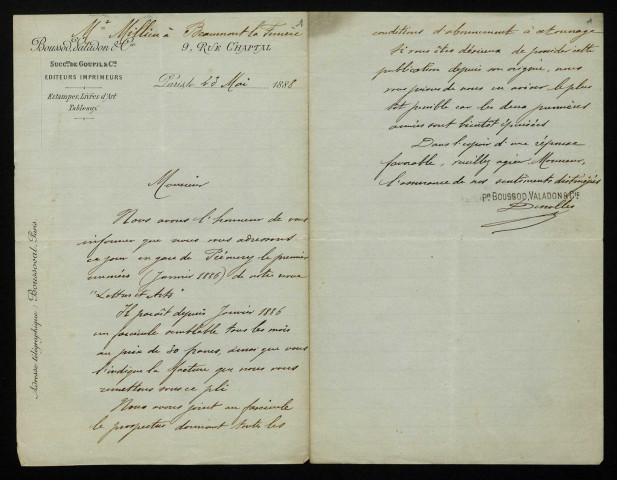 Mr Millien à Beaumont la Ferrière
Boussod, Valadon & Cie
Succrs. DE GOUPIL & Cie
EDITEURS IMPRIMEURS
Estampes, Livres d'Art
Tableaux
9, RUE CHAPTAL
Paris le 23 Mai 1888
Adresse télégraphique: Boussoval, Paris
Monsieur
Nous avons l'honneur de vous
informer que nous vous adressons
ce jour en gare de Prémery le premier
numéro (Janvier 1886) de notre revue
"Lettres et Arts"
Il paraît depuis Janvier 1886
un fascicule semblable tous les mois
au prix de 30 francs, ainsi que vous
l'indique la facture que nous vous
remettons sous ce pli
Nous avons joint au fascicule
le prospectus donnant toutes les
conditions d'abonnement à cet ouvrage
Si vous êtes désireux de posséder cette
publication depuis son origine, nous
vous prions de nous en aviser le plus
tôt possible car les deux premières
années sont bientôt épuisées
Dans l'espoir d'une réponse
favorable, veuillez agréer Monsieur,
l'assurance de nos sentiments distingués
Pn BOUSSOD, VALADON & Cie